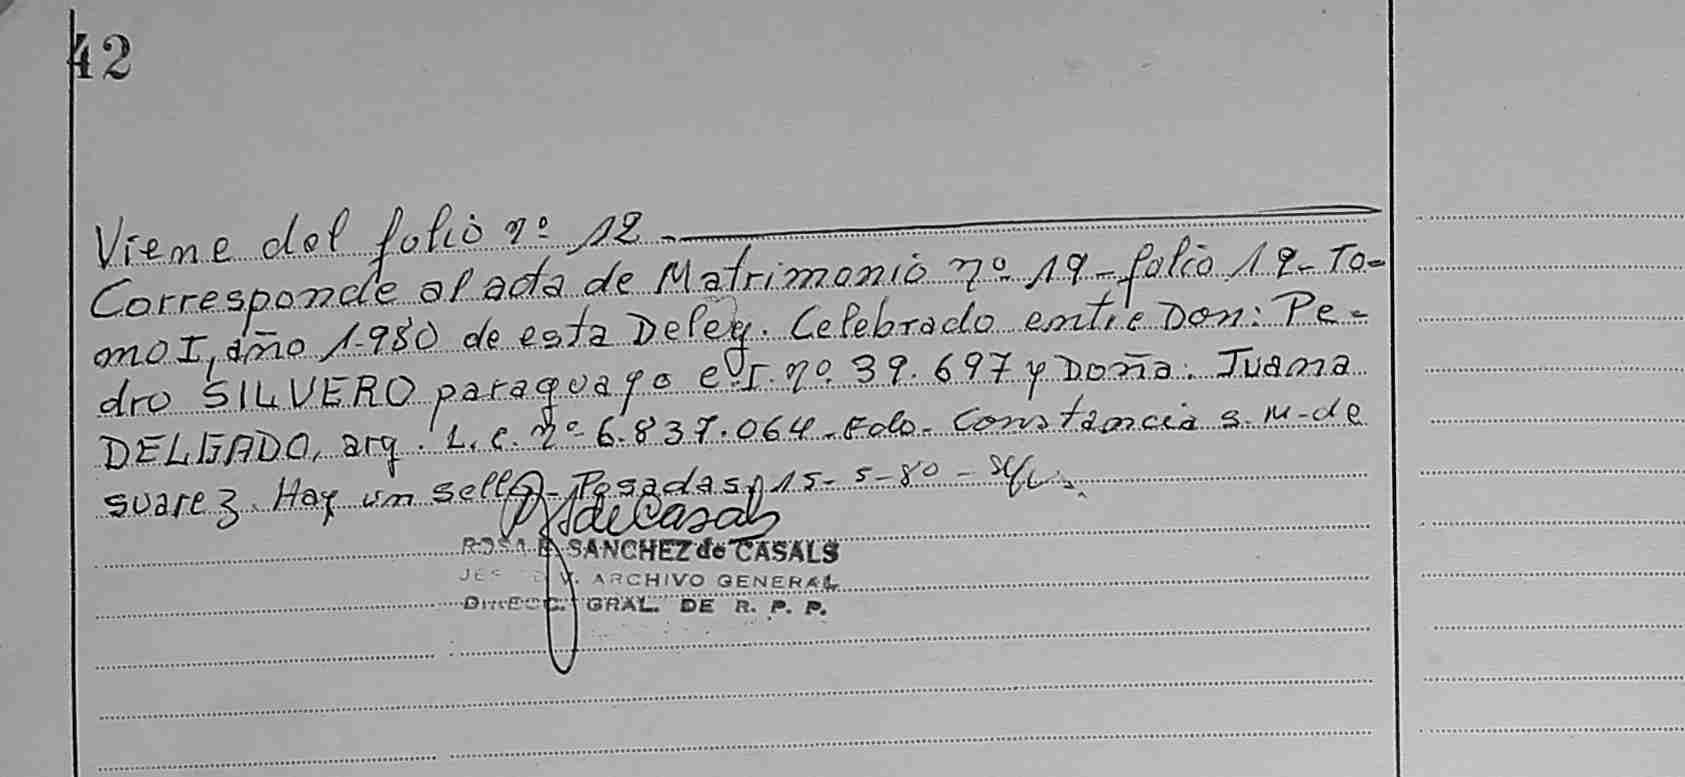 42
Viene del folio nº 12.
Corresponde al acta de Matrimonio nº 19 - folio 19 - To-
mo I, año 1.980 de esta Deleg. Celebrado entre Don: Pe-
dro SILVERO paraguayo c.I. nº. 39.697 y Doña: Juana
DELGADO, arg. L.C. nº 6.837.064. Fdo. Constancia S. M. de
Suarez. Hay un sello - Posadas, 15-5-80 -
ROSA E. SANCHEZ de CASALS
ARCHIVO GENERAL
DIRECC. GRAL. DE R. P. P.